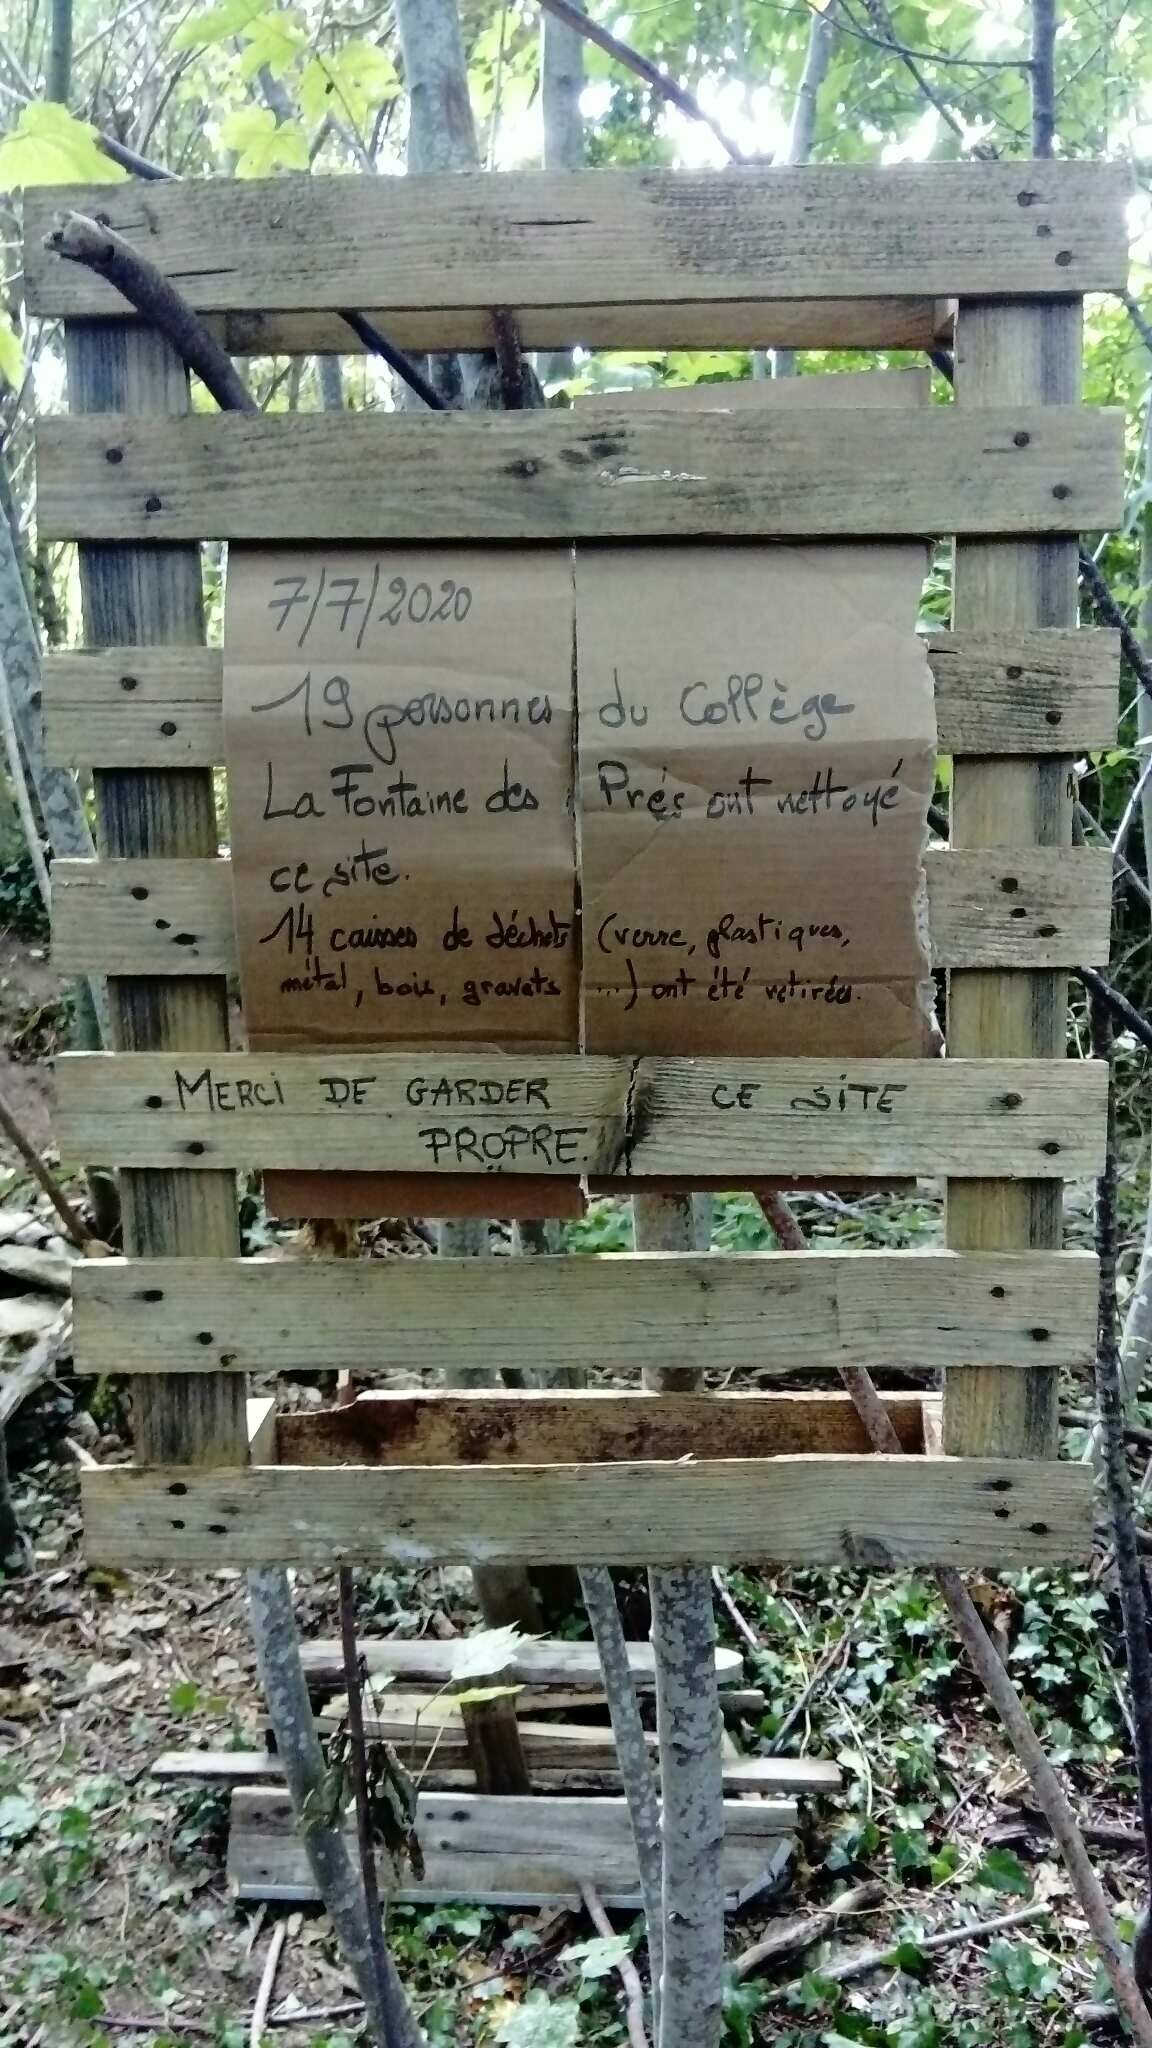 7/7/2020
19 personnes du Collège
La Fontaine des Prés ont nettoyé
ce site.
14 caisses de déchets (verre, plastiques,
métal, bois, gravats ...) ont été retirées.
MERCI DE GARDER CE SITE
PROPRE.